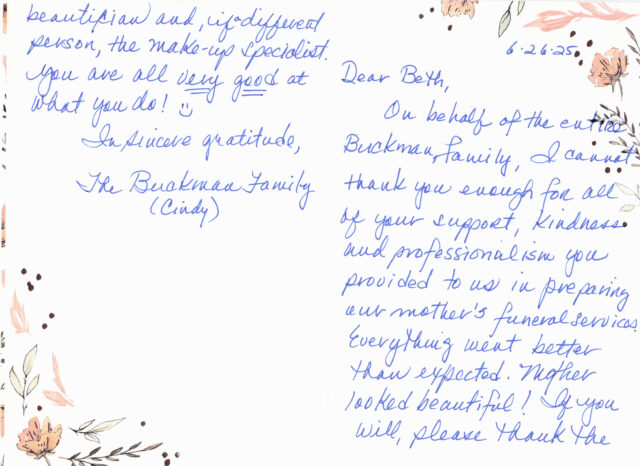 6-26-25
Dear Beth,
On behalf of the entire
Buckman family, I cannot
thank you enough for all
of your support, kindness
and professionalism you
provided to us in preparing
our mother's funeral services.
Everything went better
than expected. Mother
looked beautiful! If you
will, please thank the
beautician and, if a different
person, the make-up specialist.
You are all very good at
what you do!
In sincere gratitude,
The Buckman Family
(Cindy)